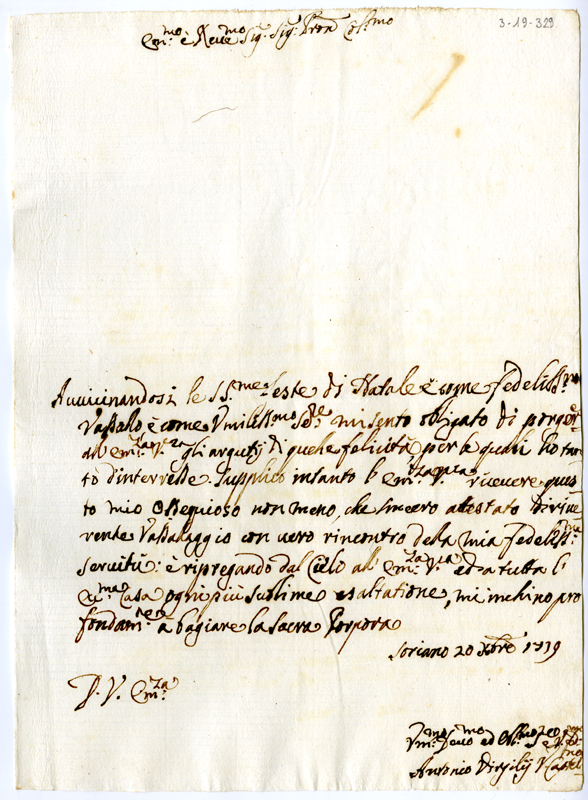 3-19-329
Em.mo è Reve.mo Sig.r Sig.r Pron Col.mo
Avvicinandosi le SS.me Feste di Natale è come fedeliss.mo
Vassallo è come Vmiliss.mo Se.re mi sento obligato di porger
all Em.za V.ra gli argurij di quelle felicità per le quali hò tan
to d'interesse. Supplico intanto l Em.za V.ra ricevere ques
to mio Ossequioso non meno, che sincero attestato di rive
rente Vassalaggio con vero rincontro della mia Fedeliss.ma
servitù: è ripregando dal Cielo all Em.za V.ra ed a tutta l
Ecc.ma Casa ogni più sublime esaltatione, mi inchino pro
fondam.te a bagiare la Sacra Porpora
Soriano 20 Xbre 1719
D. V. Em.za
Vm.mo Devo.mo ed Obl.mo
Antonio Virgilij V. Castel